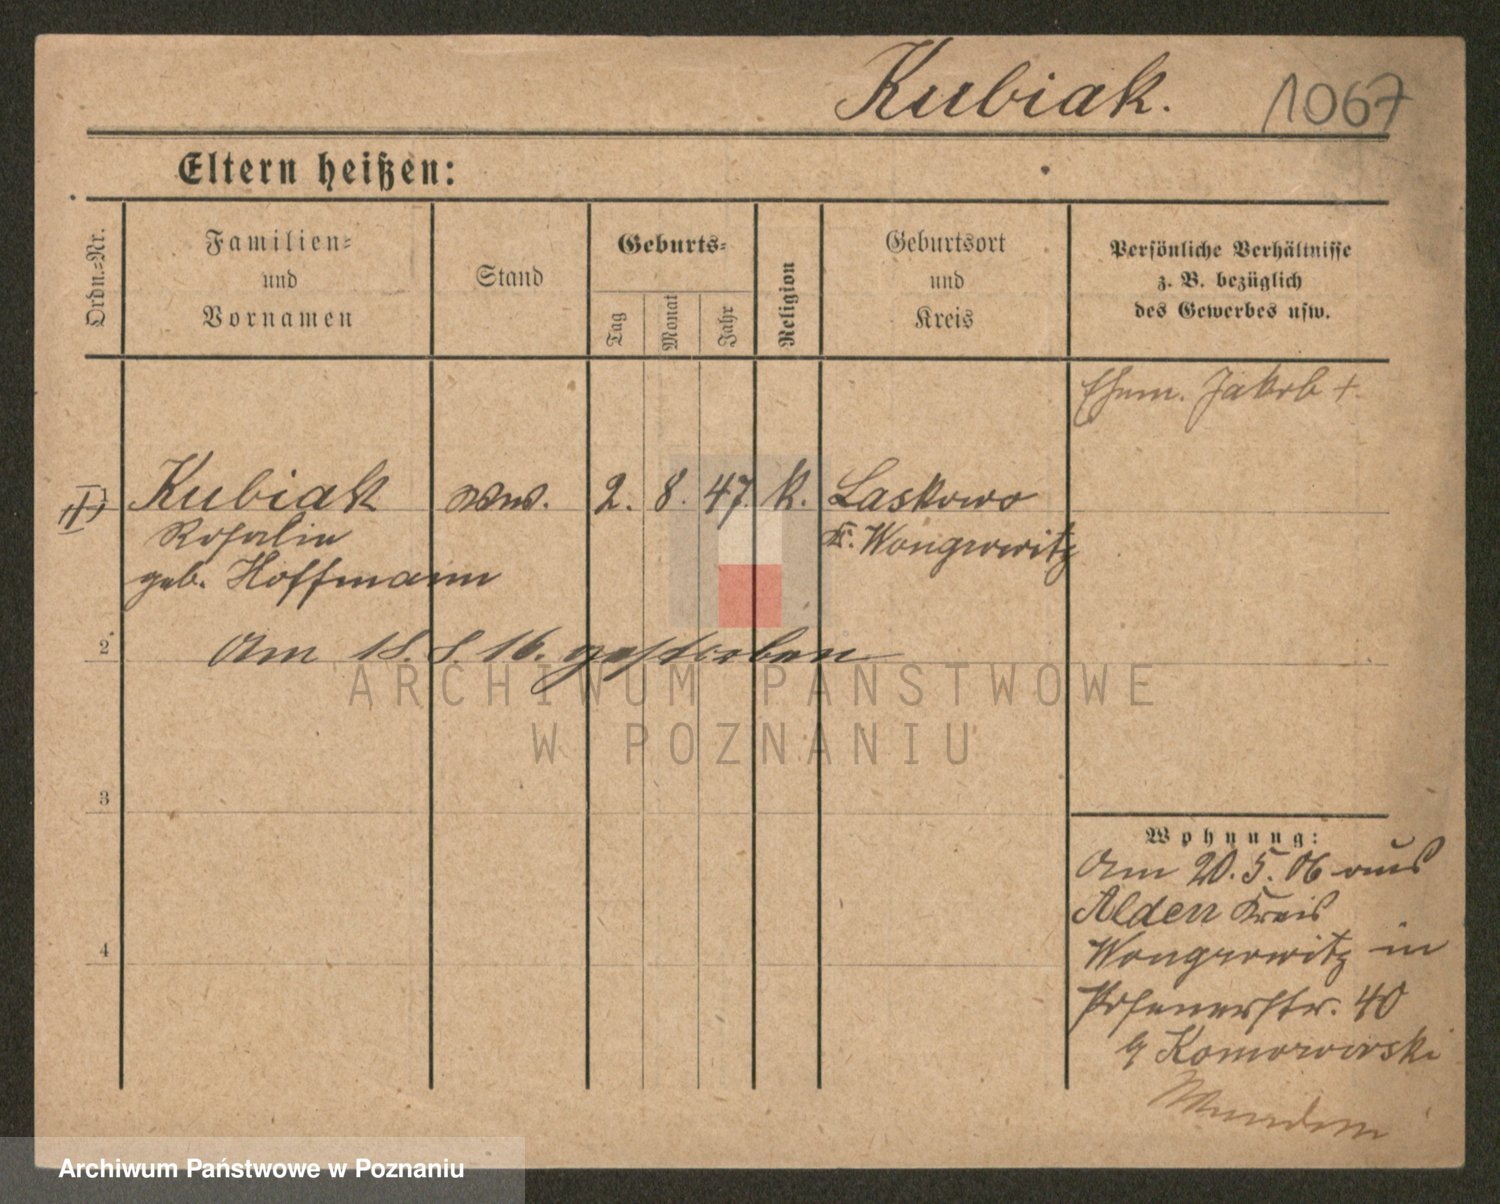 Kubiak. 1067
Eltern heißen:
Ordn.-Nr.
Familien-
und
Vornamen
Stand
Geburts-
Tag
Monat
Jahr
Religion
Geburtsort
und
Kreis
Persönliche Verhältnisse
z. B. bezüglich
des Gewerbes usw.
Ehem. Jakob +.
Kubiak Ww. 2. 8. 47. k. Laskowo
Rosalie Kr. Wongrowitz
geb. Hoffmann
2
Am 18. 8. 16. gestorben
ARCHIWUM PAŃSTWOWE
W POZNANIU
3
Wohnung:
Am 20. 5. 06 aus
Alden Kreis
Wongrowitz in
Posenerstr. 40
4
b/ Komorowski
Archiwum Państwowe w Poznaniu